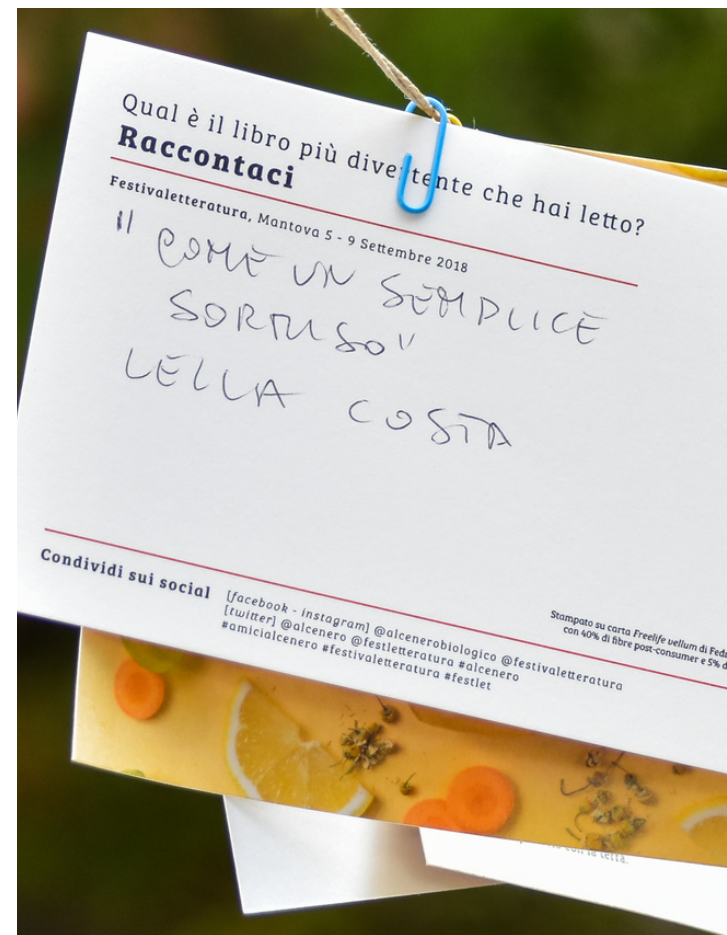 Qual è il libro più divertente che hai letto?
Raccontaci
Festivaletteratura, Mantova 5 - 9 Settembre 2018
"COME UN SEMPLICE
SORRISO"
LELLA COSTA
Condividi sui social
[facebook - instagram] @alcenerobiologico @festivaletteratura
[twitter] @alcenero @festletteratura #alcenero
#amicialcenero #festivaletteratura #festlet
Stampato su carta Freelife vellum di Fed
con 40% di fibre post-consumer e 5% d
con la terra.